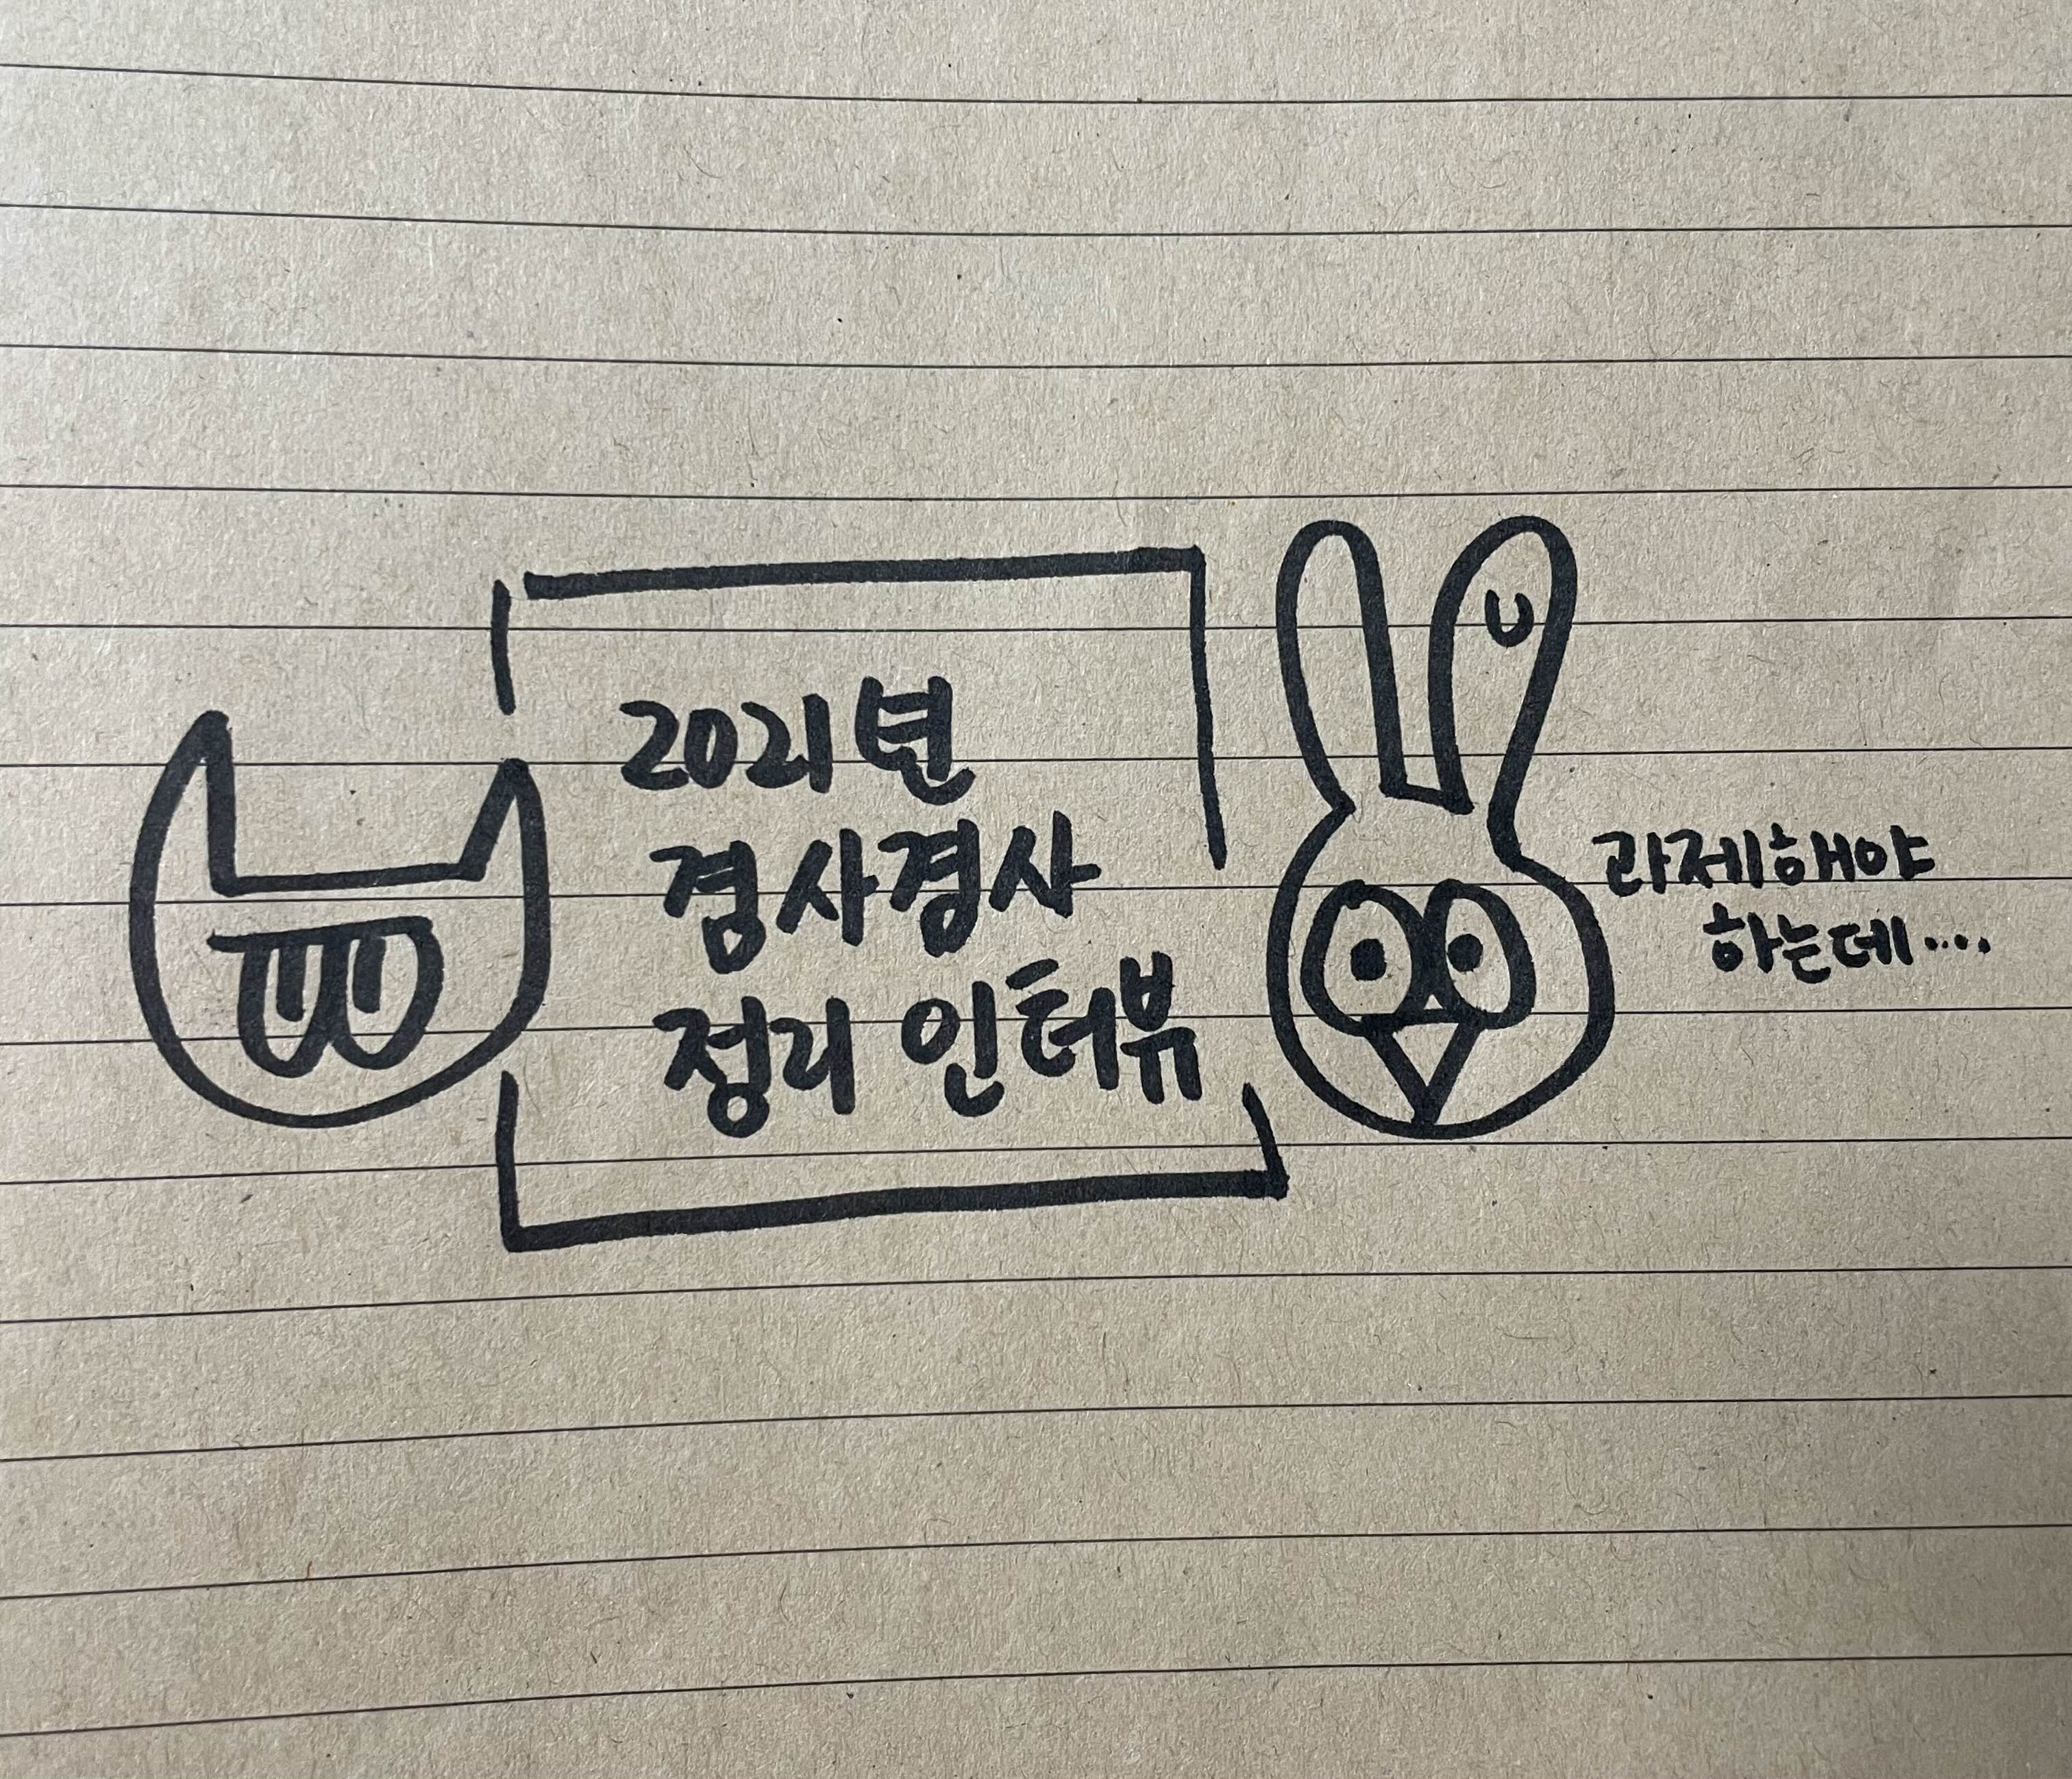 2021년
경사경사
정리 인터뷰
과제해야
하는데....